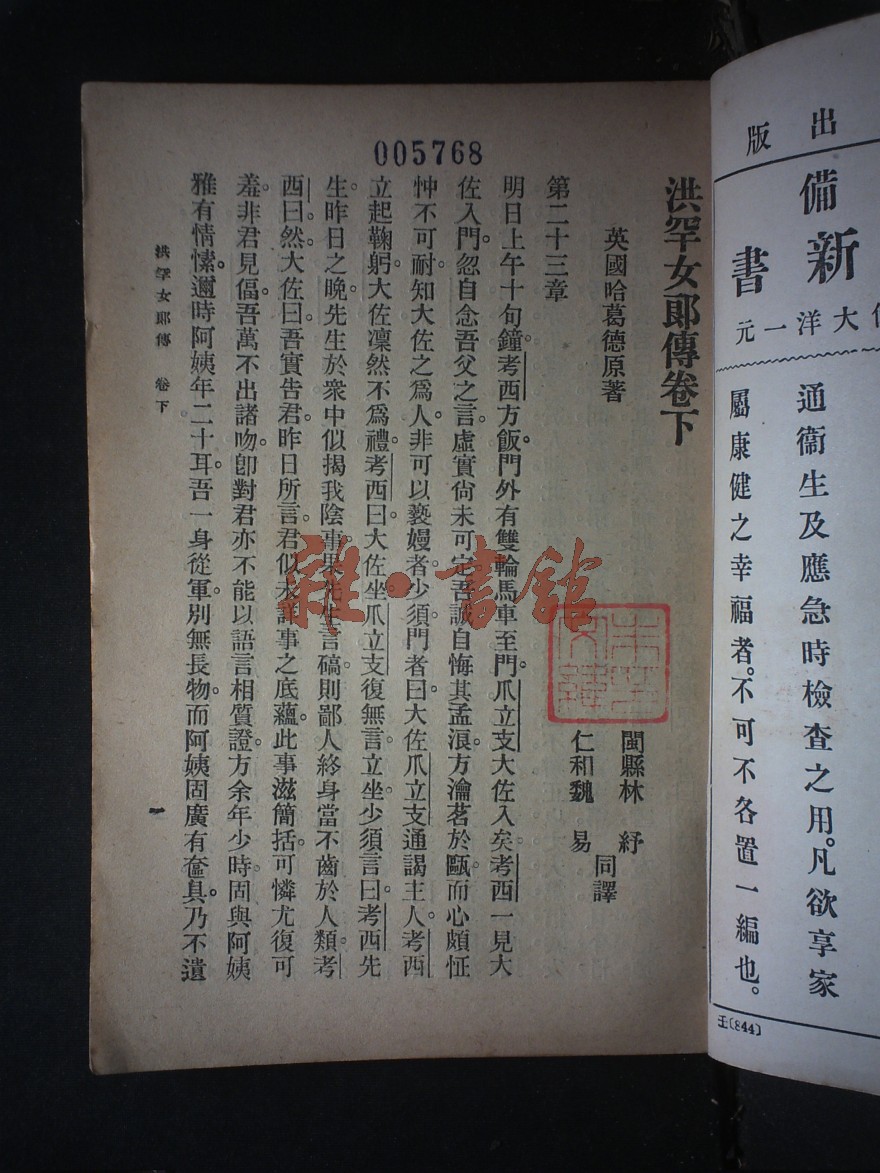 005768
洪罕女郎傳卷下
英國哈葛德原著
閩縣林　紓
仁和魏　易
同譯
第二十三章
明日上午十句鐘。考西方飯。門外有雙輪馬車至門。爪立支大佐入矣。考西一見大
佐入門。忽自念吾父之言。虛實尙未可定。吾誠自悔其孟浪。方瀹茗於甌。而心頗怔
忡不可耐。知大佐之爲人。非可以褻嫚者。少須門者曰。大佐爪立支通謁主人。考西
立起鞠躬。大佐凜然不爲禮。考西曰。大佐坐。爪立支復無言。立坐。少須言曰。考西先
生。昨日之晚。先生於衆中似揭我陰事。果先生言碻。則鄙人終身當不齒於人類。考
西曰。然。大佐曰。吾實告君。昨日所言。君似未詳事之底蘊。此事滋簡括。可憐尤復可
羞。非君見偪。吾萬不出諸吻。卽對君亦不能以語言相質證。方余年少時。固與阿姨
雅有情愫。邇時阿姨年二十耳。吾一身從軍。別無長物。而阿姨固廣有奩具。乃不遺
洪罕女郎傳　卷下
一
雜·書館
出版
備
新書
大洋一元
通衞生及應急時檢查之用。凡欲享家
屬康健之幸福者。不可不各置一編也。
王(844)